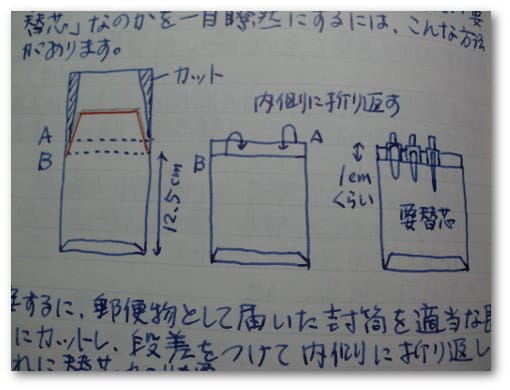 替芯」なのかを一目瞭然にするには、こんな方法
があります。
カット
内側に折り返す
A
B
12.5cm
A
B
1cm
くらい
要替芯
するに、郵便物として届いた封筒を適当な
にカットし、段差をつけて内側に折り返し
れに替芯